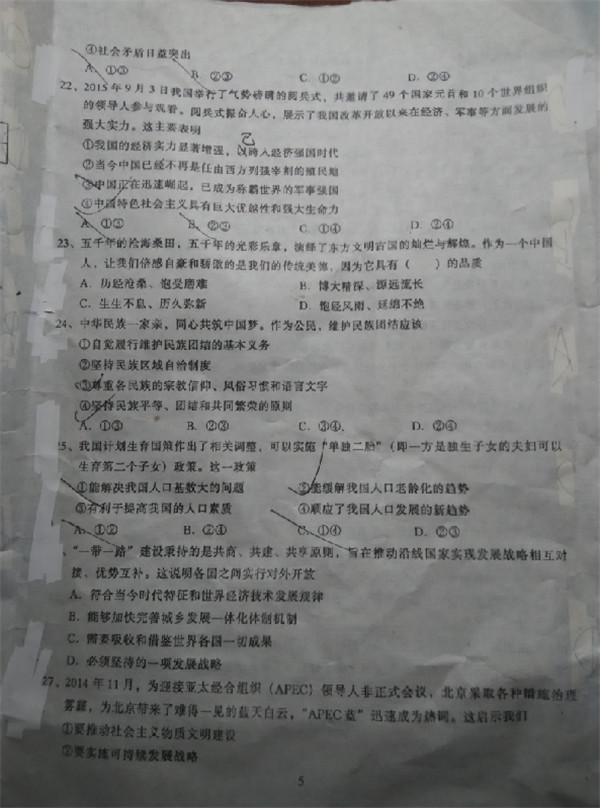 ④社会矛盾日益突出
A. ①③ B. ②③ C. ①② D. ②④
22、2015年9月3日我国举行了气势磅礴的阅兵式，共邀请了49个国家元首和10个世界组织
的领导人参与观看。阅兵式振奋人心，展示了我国改革开放以来在经济、军事等方面发展的
强大实力。这主要表明
①我国的经济实力显著增强，以跨入经济强国时代
②当今中国已经不再是任由西方列强宰割的殖民地
③中国正在迅速崛起，已成为称霸世界的军事强国
④中国特色社会主义具有巨大优越性和强大生命力
A. ①③ B. ②③ C. ①④ D. ②④
23、五千年的沧海桑田，五千年的光彩乐章，演绎了东方文明古国的灿烂与辉煌。作为一个中国
人，让我们倍感自豪和骄傲的是我们的传统美德，因为它具有（ ）的品质
A. 历经沧桑、饱受磨难 B. 博大精深、源远流长
C. 生生不息、历久弥新 D. 饱经风雨、延绵不绝
24、中华民族一家亲，同心共筑中国梦。作为公民，维护民族团结应该
①自觉履行维护民族团结的基本义务
②坚持民族区域自治制度
③尊重各民族的宗教信仰、风俗习惯和语言文字
④坚持民族平等、团结和共同繁荣的原则
A. ①③ B. ②③ C. ③④. D. ②④
25、我国计划生育国策作出了相关调整，可以实施“单独二胎”（即一方是独生子女的夫妇可以
生育第二个子女）政策。这一政策
①能解决我国人口基数大的问题 ②能缓解我国人口老龄化的趋势
③有利于提高我国的人口素质 ④顺应了我国人口发展的新趋势
A. ①② B. ②④ C. ①④ D. ②③
、“一带一路”建设秉持的是共商、共建、共享原则，旨在推动沿线国家实现发展战略相互对
接、优势互补。这说明各国之间实行对外开放
A. 符合当今时代特征和世界经济技术发展规律
B. 能够加快完善城乡发展一体化体制机制
C. 需要吸收和借鉴世界各国一切成果
D. 必须坚持的一项发展战略
27、2014年11月，为迎接亚太经合组织（APEC）领导人非正式会议，北京采取各种措施治理
雾霾，为北京带来了难得一见的蓝天白云，“APEC蓝”迅速成为热词。这启示我们
①要推动社会主义物质文明建设
②要实施可持续发展战略
5